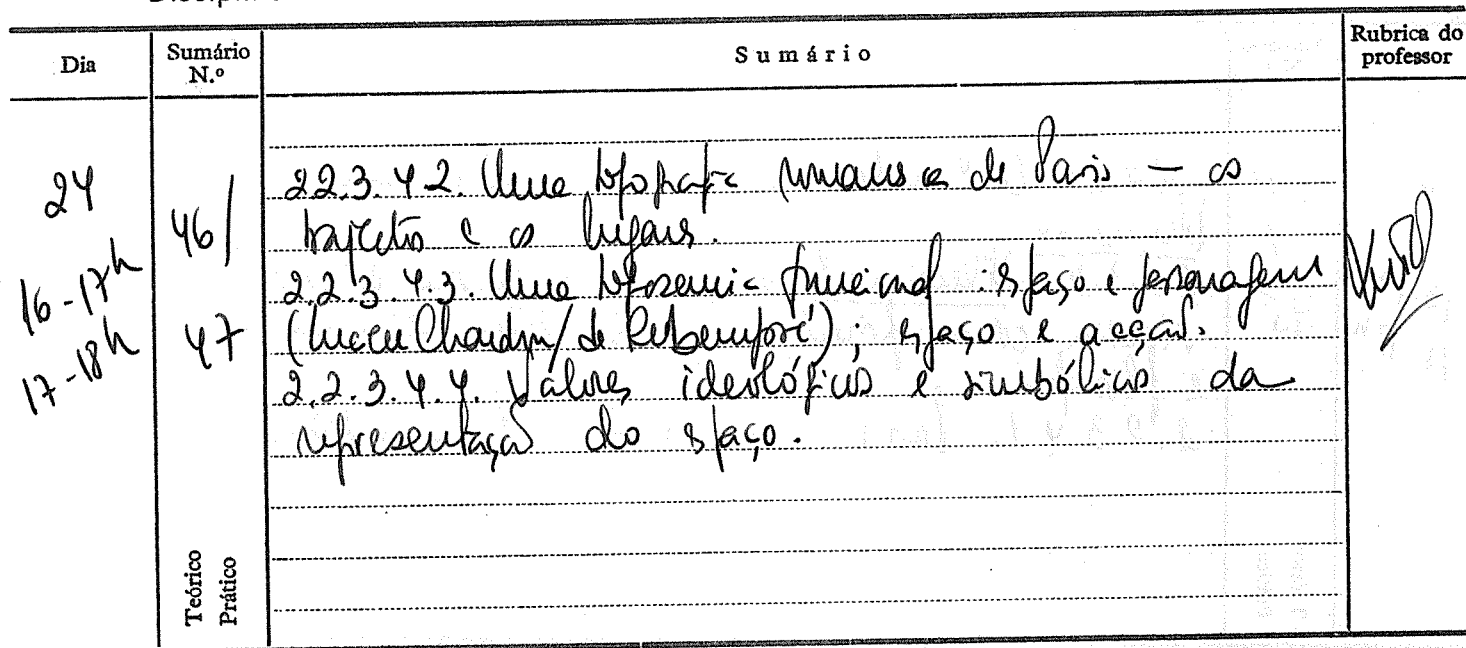 Dia Sumário N.º Sumário Rubrica do professor
24 46/ 2.2.3.4.2. Uma topografia romanesca de Paris — os
trajectos e os lugares.
16-17h 2.2.3.4.3. Uma toposemia funcional: espaço e personagem
17-18h 47 (Lucien Chardon/de Rubempré); espaço e acção.
2.2.3.4.4. Valores ideológicos e simbólicos da
representação do espaço.
Teórico
Prático